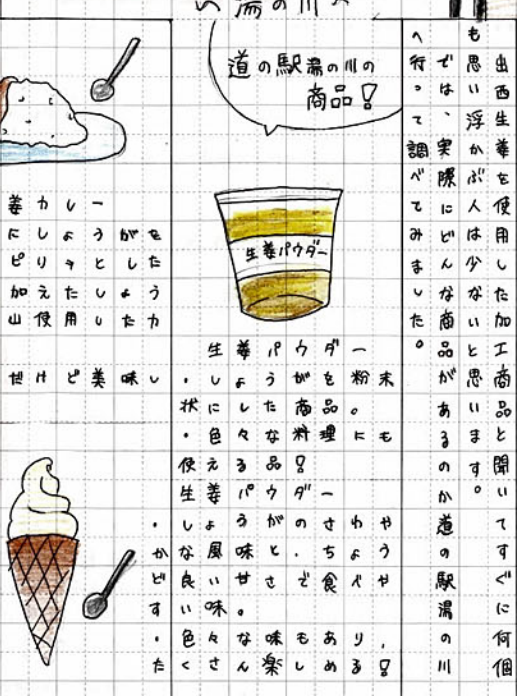 湯の川
出西生姜を使用した加工商品と聞いてすぐに何個
も思い浮かぶ人は少ないと思います。
では、実際にどんな商品があるのか道の駅湯の川
へ行って調べてみました。
道の駅湯の川の
商品!
生姜パウダー
生姜パウダー
・しょうがを粉末
状にした商品。
・色々な料理にも
使える品!
生姜パウダー
・しょうがのさわや
かな風味と、ちょう
ど良い甘さで食べや
すい味。
・色々な味もあり、
たくさん楽しめる!
姜カレー
にしょうがを
ピリッとした
加えたしょう
山使用したカ
だけど美味し